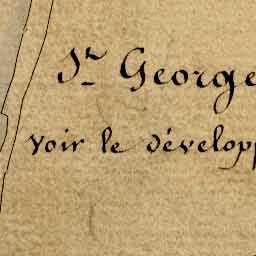 St. George
Voir le dévelop